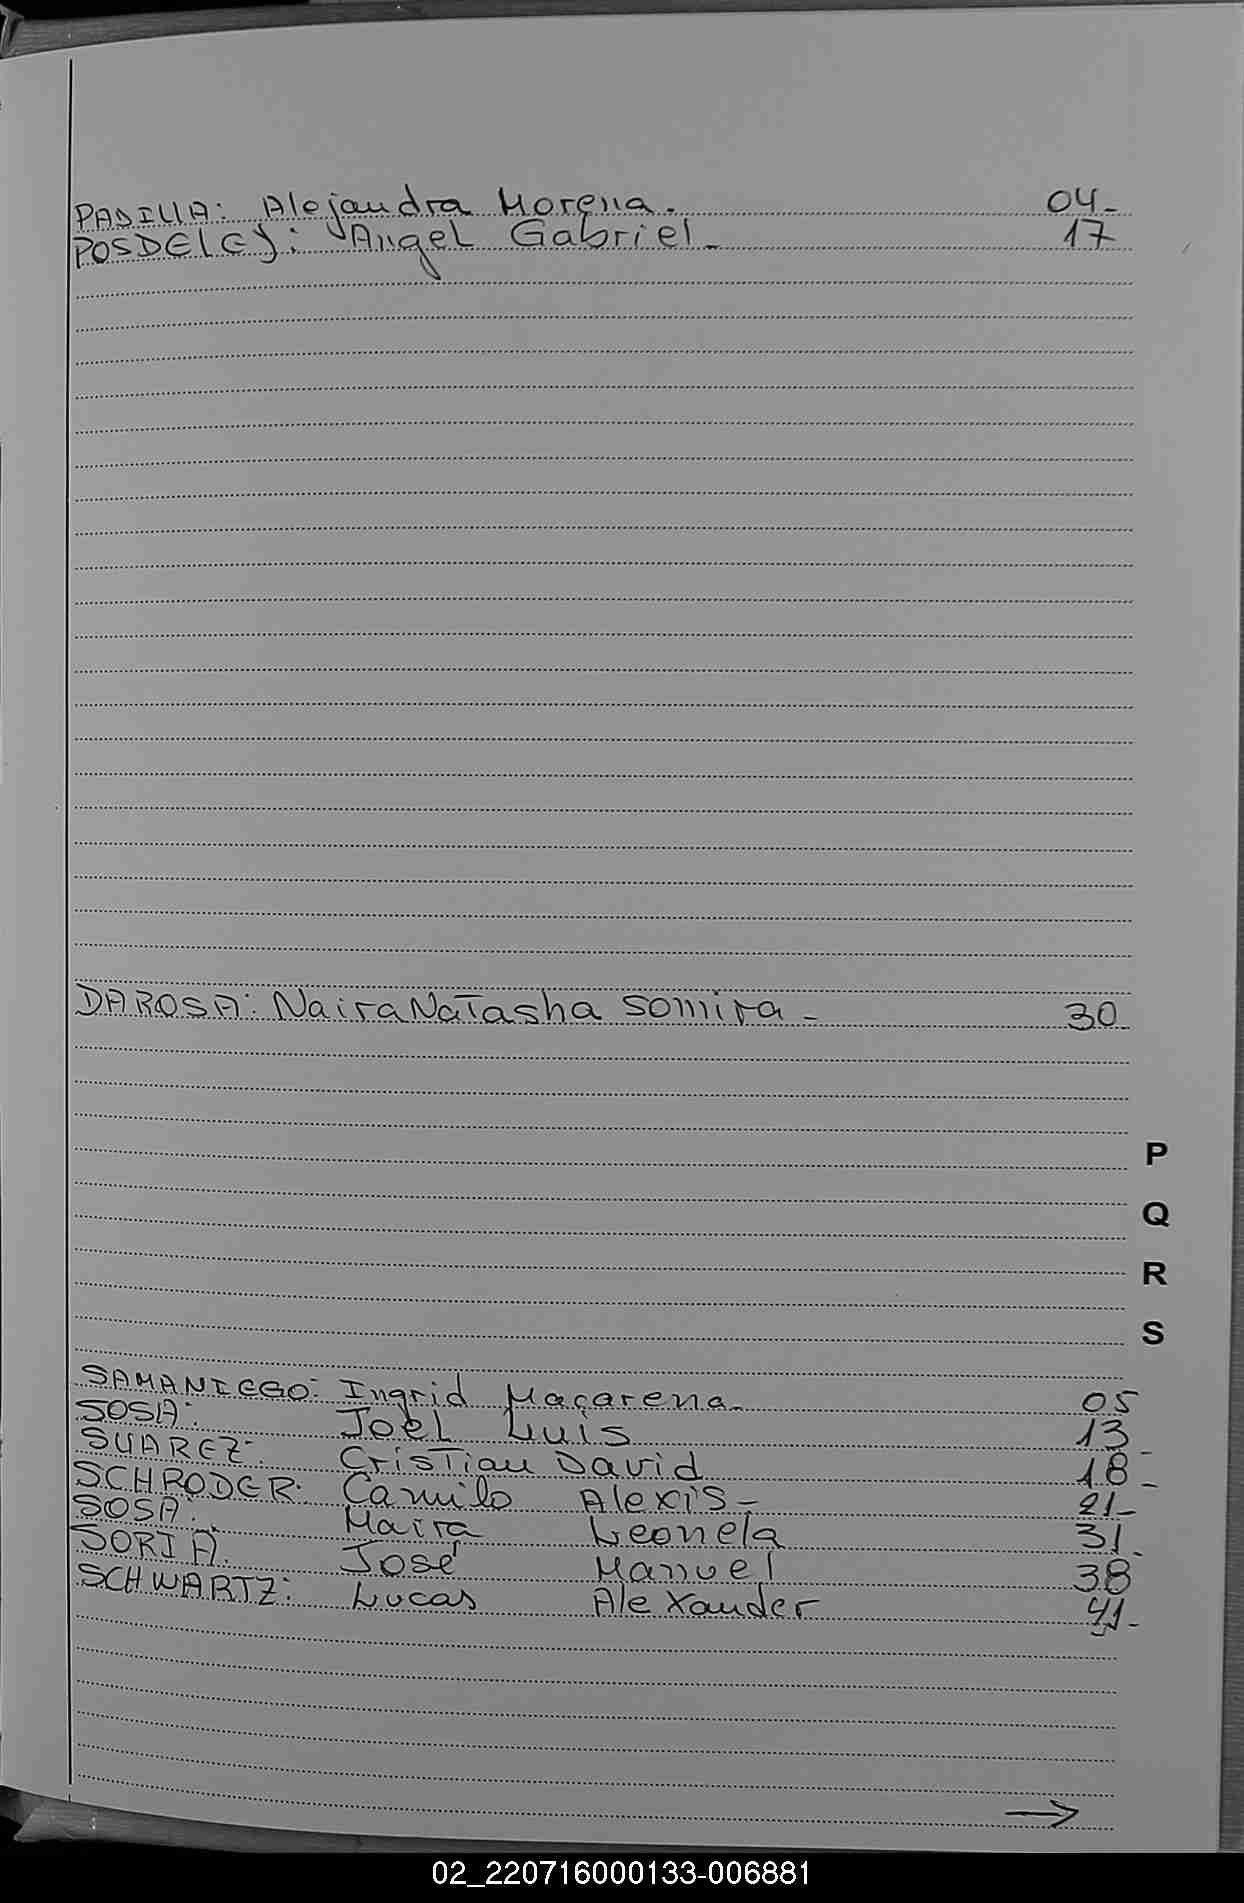 PADILLA: Alejandra Morena. 04-
Angel Gabriel- 17
DAROSA: Naira Natasha Somira- 30-
P
Q
R
S
SAMANIEGO: Ingrid Macarena- 05
SOSA: Joel Luis 13-
SUAREZ: Cristian David 18-
SCHRODER: Camilo Alexis- 21-
SOSA: Maira Leonela 31-
SORIA. José Manuel 38
SCHWARTZ: Lucas Alexander 41-
→
02_220716000133-006881